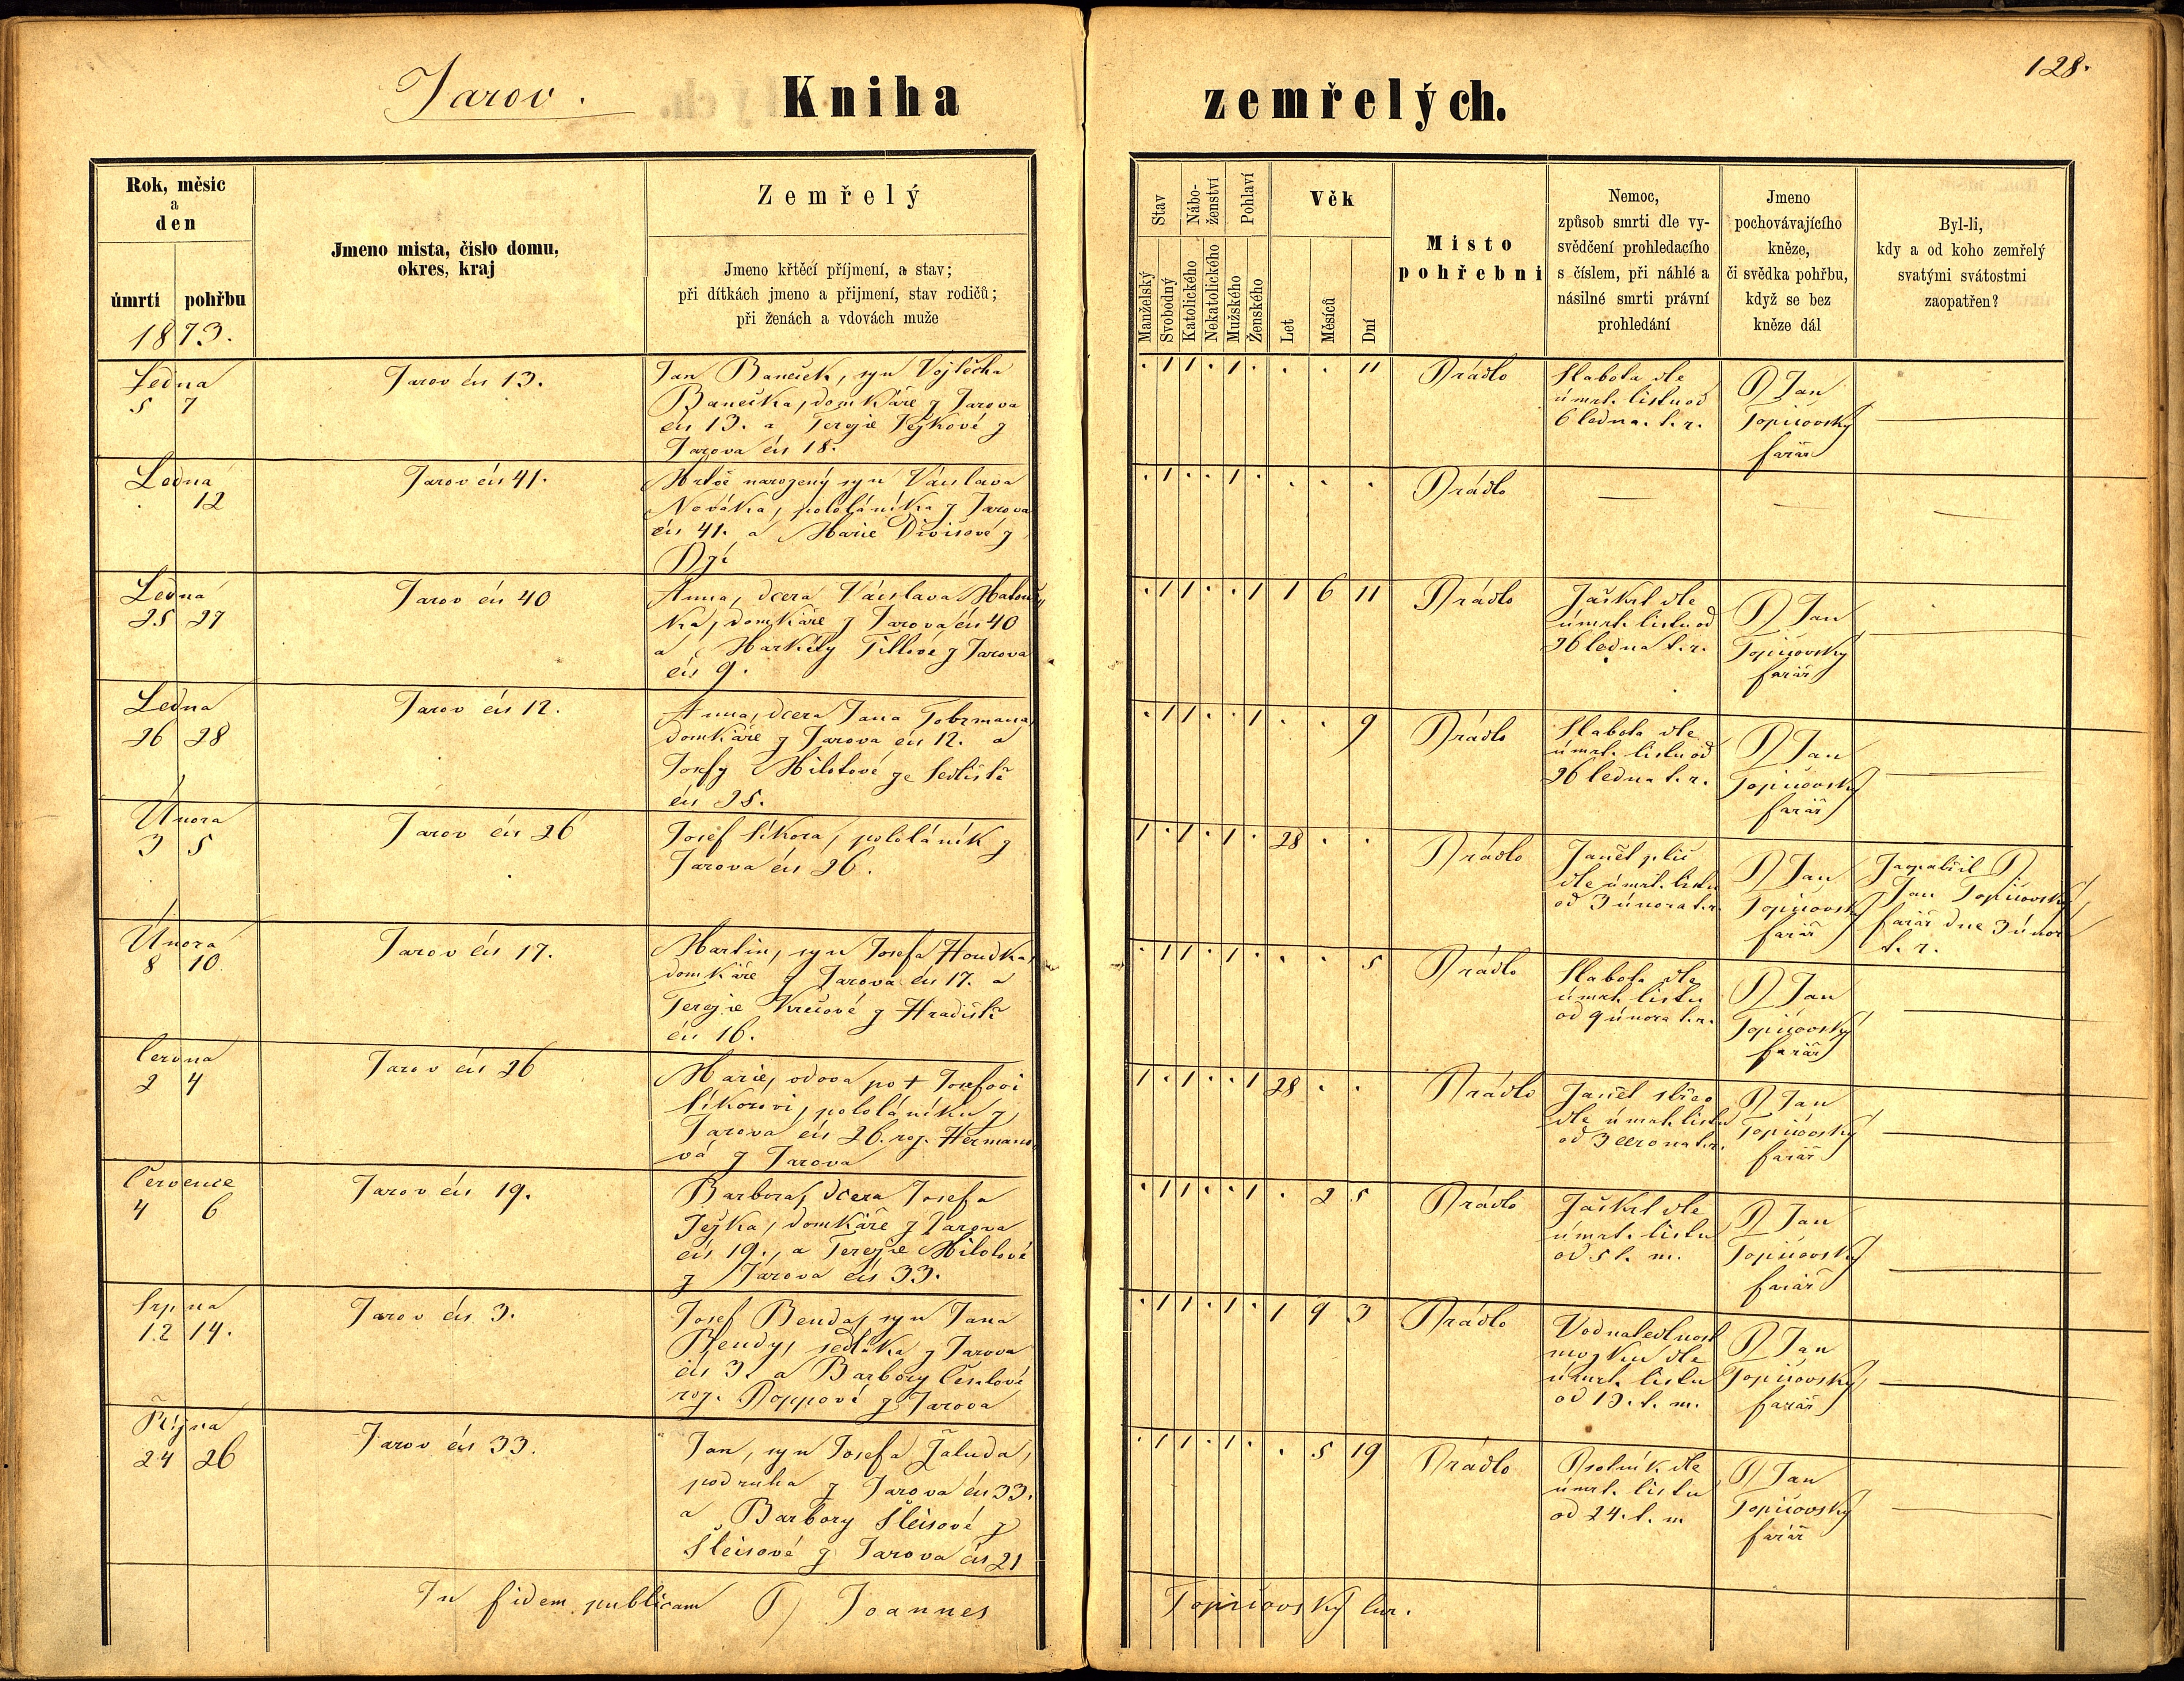 Jarov.
Kniha
zemřelých.
128.
Rok, měsíc
a
den
úmrtí
pohřbu
1873.
Jmeno mista, číslo domu,
okres, kraj
Zemřelý
Jmeno křtěcí příjmení, a stav;
při dítkách jmeno a přijmení, stav rodičů;
při ženách a vdovách muže
Stav
Manželský
Svobodný
Nábo-
ženství
Katolického
Nekatolického
Pohlaví
Mužského
Ženského
Věk
Let
Měsíců
Dní
Misto
pohřebni
Nemoc,
způsob smrti dle vy-
svědčení prohledacího
s číslem, při náhlé a
násilné smrti právní
prohledání
Jmeno
pochovávajícího
kněze,
či svědka pohřbu,
když se bez
kněze dál
Byl-li,
kdy a od koho zemřelý
svatými svátostmi
zaopatřen?
Ledna
5 7
Jarov čís 13.
Jan Baneček, syn Vojtěcha
Banečka, domkáře z Jarova
čís 13. a Terezie Ježkové z
Jarova čís 18.
. 1 1 . 1 . . . 11
Prádlo
Slabota dle
úmrt. listu od
6 ledna t. r.
P Jan
Topičovský
farář
Ledna
12
Jarov čís 41.
Mrtvě narozený syn Václava
Nováka, pololáníka z Jarova
čís 41. a Marie Divišové z
. 1 . . 1 . . . .
Prádlo
Ledna
25 27
Jarov čís 40
Anna, dcera Václava Matouš
ka, domkáře z Jarova čís 40
a Markéty Tillové z Jarova
čís 9.
. 1 1 . . 1 1 6 11
Prádlo
Záškrt dle
úmrt. listu od
26 ledna t. r.
P Jan
Topičovský
farář
Ledna
26 28
Jarov čís 12.
Anna, dcera Jana Tobrmana,
domkáře z Jarova čís 12. a
Josefy Milotové ze Sedliště
čís 25.
. 1 1 . . 1 . . 9
Prádlo
Slabota dle
úmrt. listu od
26 ledna t. r.
P Jan
Topičovský
farář
Února
3 5
Jarov čís 26
Josef Síkora, pololáník z
Jarova čís 26.
1 . 1 . 1 . 28 . .
Prádlo
Zánět plic
dle úmrt. listu
od 3 února t. r.
P Jan
Topičovský
farář
Zaopatřil P
Jan Topičovský
farář dne 3 února
t. r.
Února
8 10
Jarov čís 17.
Martin, syn Josefa Houdka,
domkáře z Jarova čís 17. a
Terezie Krčové z Hradiště
čís 16.
. 1 1 . 1 . . . 5
Prádlo
Slabota dle
úmrt. listu
od 9 února t. r.
P Jan
Topičovský
farář
Června
2 4
Jarov čís 26
Marie, vdova po + Josefovi
Síkorovi, pololáníku z
Jarova čís 26. roz. Heřmano
vá z Jarova
1 . 1 . . 1 28 . .
Prádlo
Zánět střev
dle úmrt. listu
od 3 června t. r.
P Jan
Topičovský
farář
Července
4 6
Jarov čís 19.
Barbora, dcera Josefa
Ježka, domkáře z Jarova
čís 19., a Terezie Milotové
z Jarova čís 33.
. 1 1 . . 1 . 2 5
Prádlo
Záškrt dle
úmrt. listu
od 5 t. m.
P Jan
Topičovský
farář
Srpna
12 14.
Jarov čís 3.
Josef Benda, syn Jana
Bendy, sedláka z Jarova
čís 3. a Barbory
roz. Poppové z Jarova
. 1 1 . 1 . 1 9 3
Prádlo
Vodnatedlnost
mozku dle
úmrt. listu
od 13. t. m.
P Jan
Topičovský
farář
Října
24 26
Jarov čís 33.
Jan, syn Josefa Žaluda,
podruha z Jarova čís 33.
a Barbory Šleisové z
Šleisové z Jarova čís 21
. 1 1 . 1 . . 5 19
Prádlo
Psotník dle
úmrt. listu
od 24. t. m
P Jan
Topičovský
farář
In fidem publicam P Joannes
Topičovský cur.